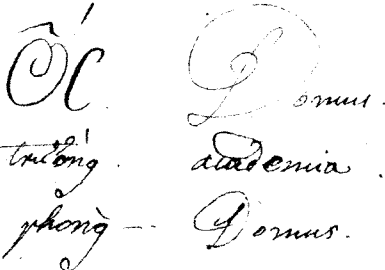 Ốc Domus.
trường. academia.
phòng – Domus.